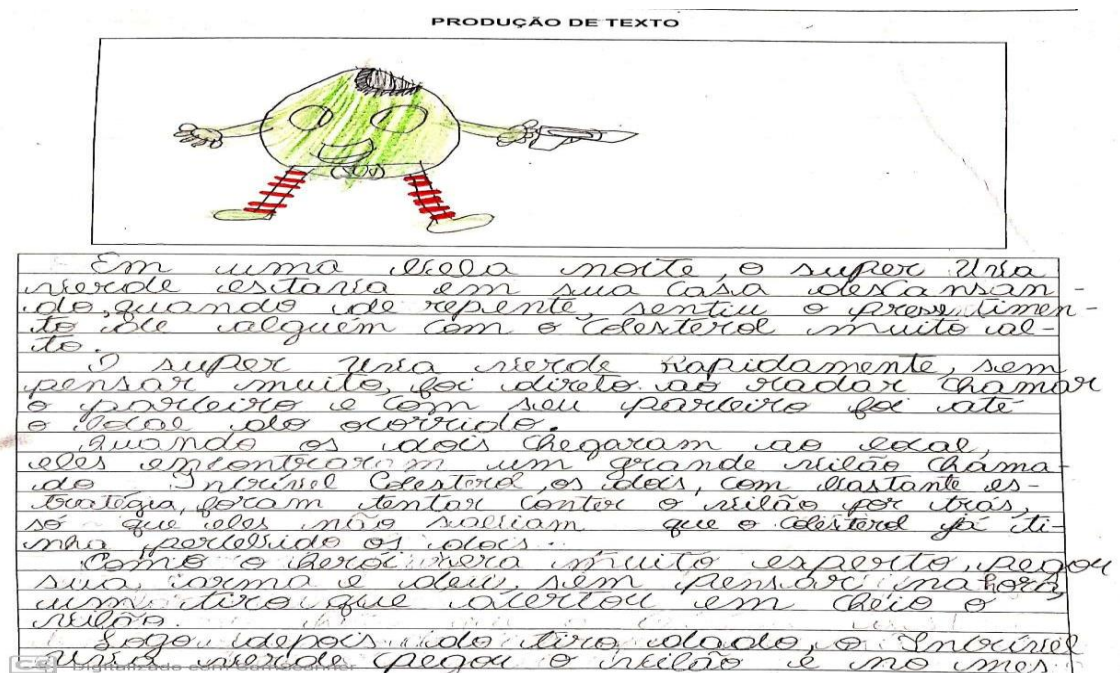 PRODUÇÃO DE TEXTO
Em uma bela noite, o super Uva
verde estava em sua casa descansan-
do, quando de repente, sentiu o pressentimen-
to de alguém com o colesterol muito al-
to.
O super Uva verde rapidamente, sem
pensar muito, foi direto ao radar chamar
o parceiro e com seu parceiro foi até
o local do ocorrido.
Quando os dois chegaram ao local,
eles encontraram um grande vilão chama-
do Incrível Colesterol, os dois, com bastante es-
tratégia, foram tentar conter o vilão por trás,
só que eles não sabiam que o colesterol já ti-
nha percebido os dois.
Como o herói era muito esperto, pegou
sua arma e deu, sem pensar, na hora,
um tiro que acertou em cheio o
vilão.
Logo depois do tiro dado, o Incrível
Uva verde pegou o vilão e no mes
CS Digitalizado com CamScanner